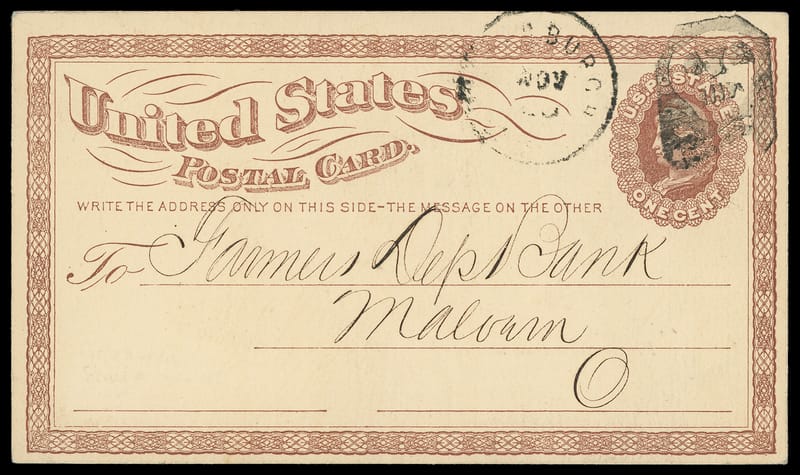 United States
POSTAL CARD.
NOV
U.S. POSTAGE
ONE CENT
WRITE THE ADDRESS ONLY ON THIS SIDE-THE MESSAGE ON THE OTHER
To Farmers Dept Bank
Malvern
O